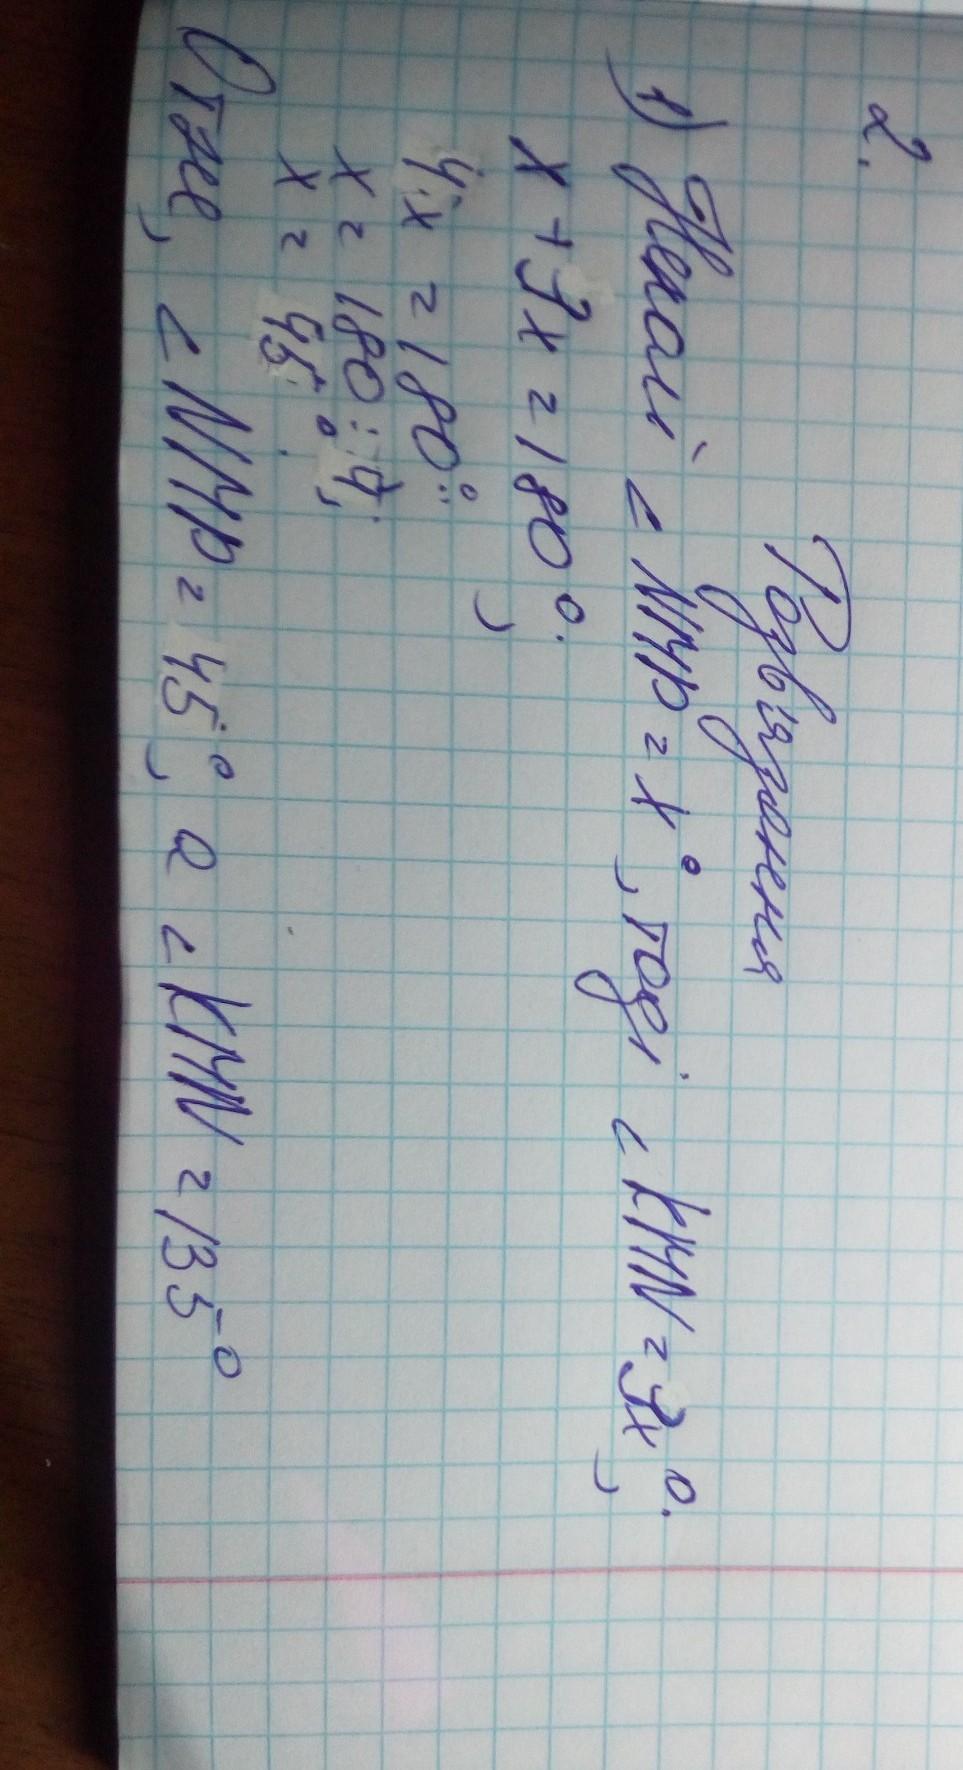 2.
Розв'язання
1) Нехай ∠ NMP = x°, тоді ∠ KMN = 3x°.
x + 3x = 180°.
4x = 180°;
x = 180 : 4;
x = 45°.
Отже, ∠ NMP = 45°, а ∠ KMN = 135°